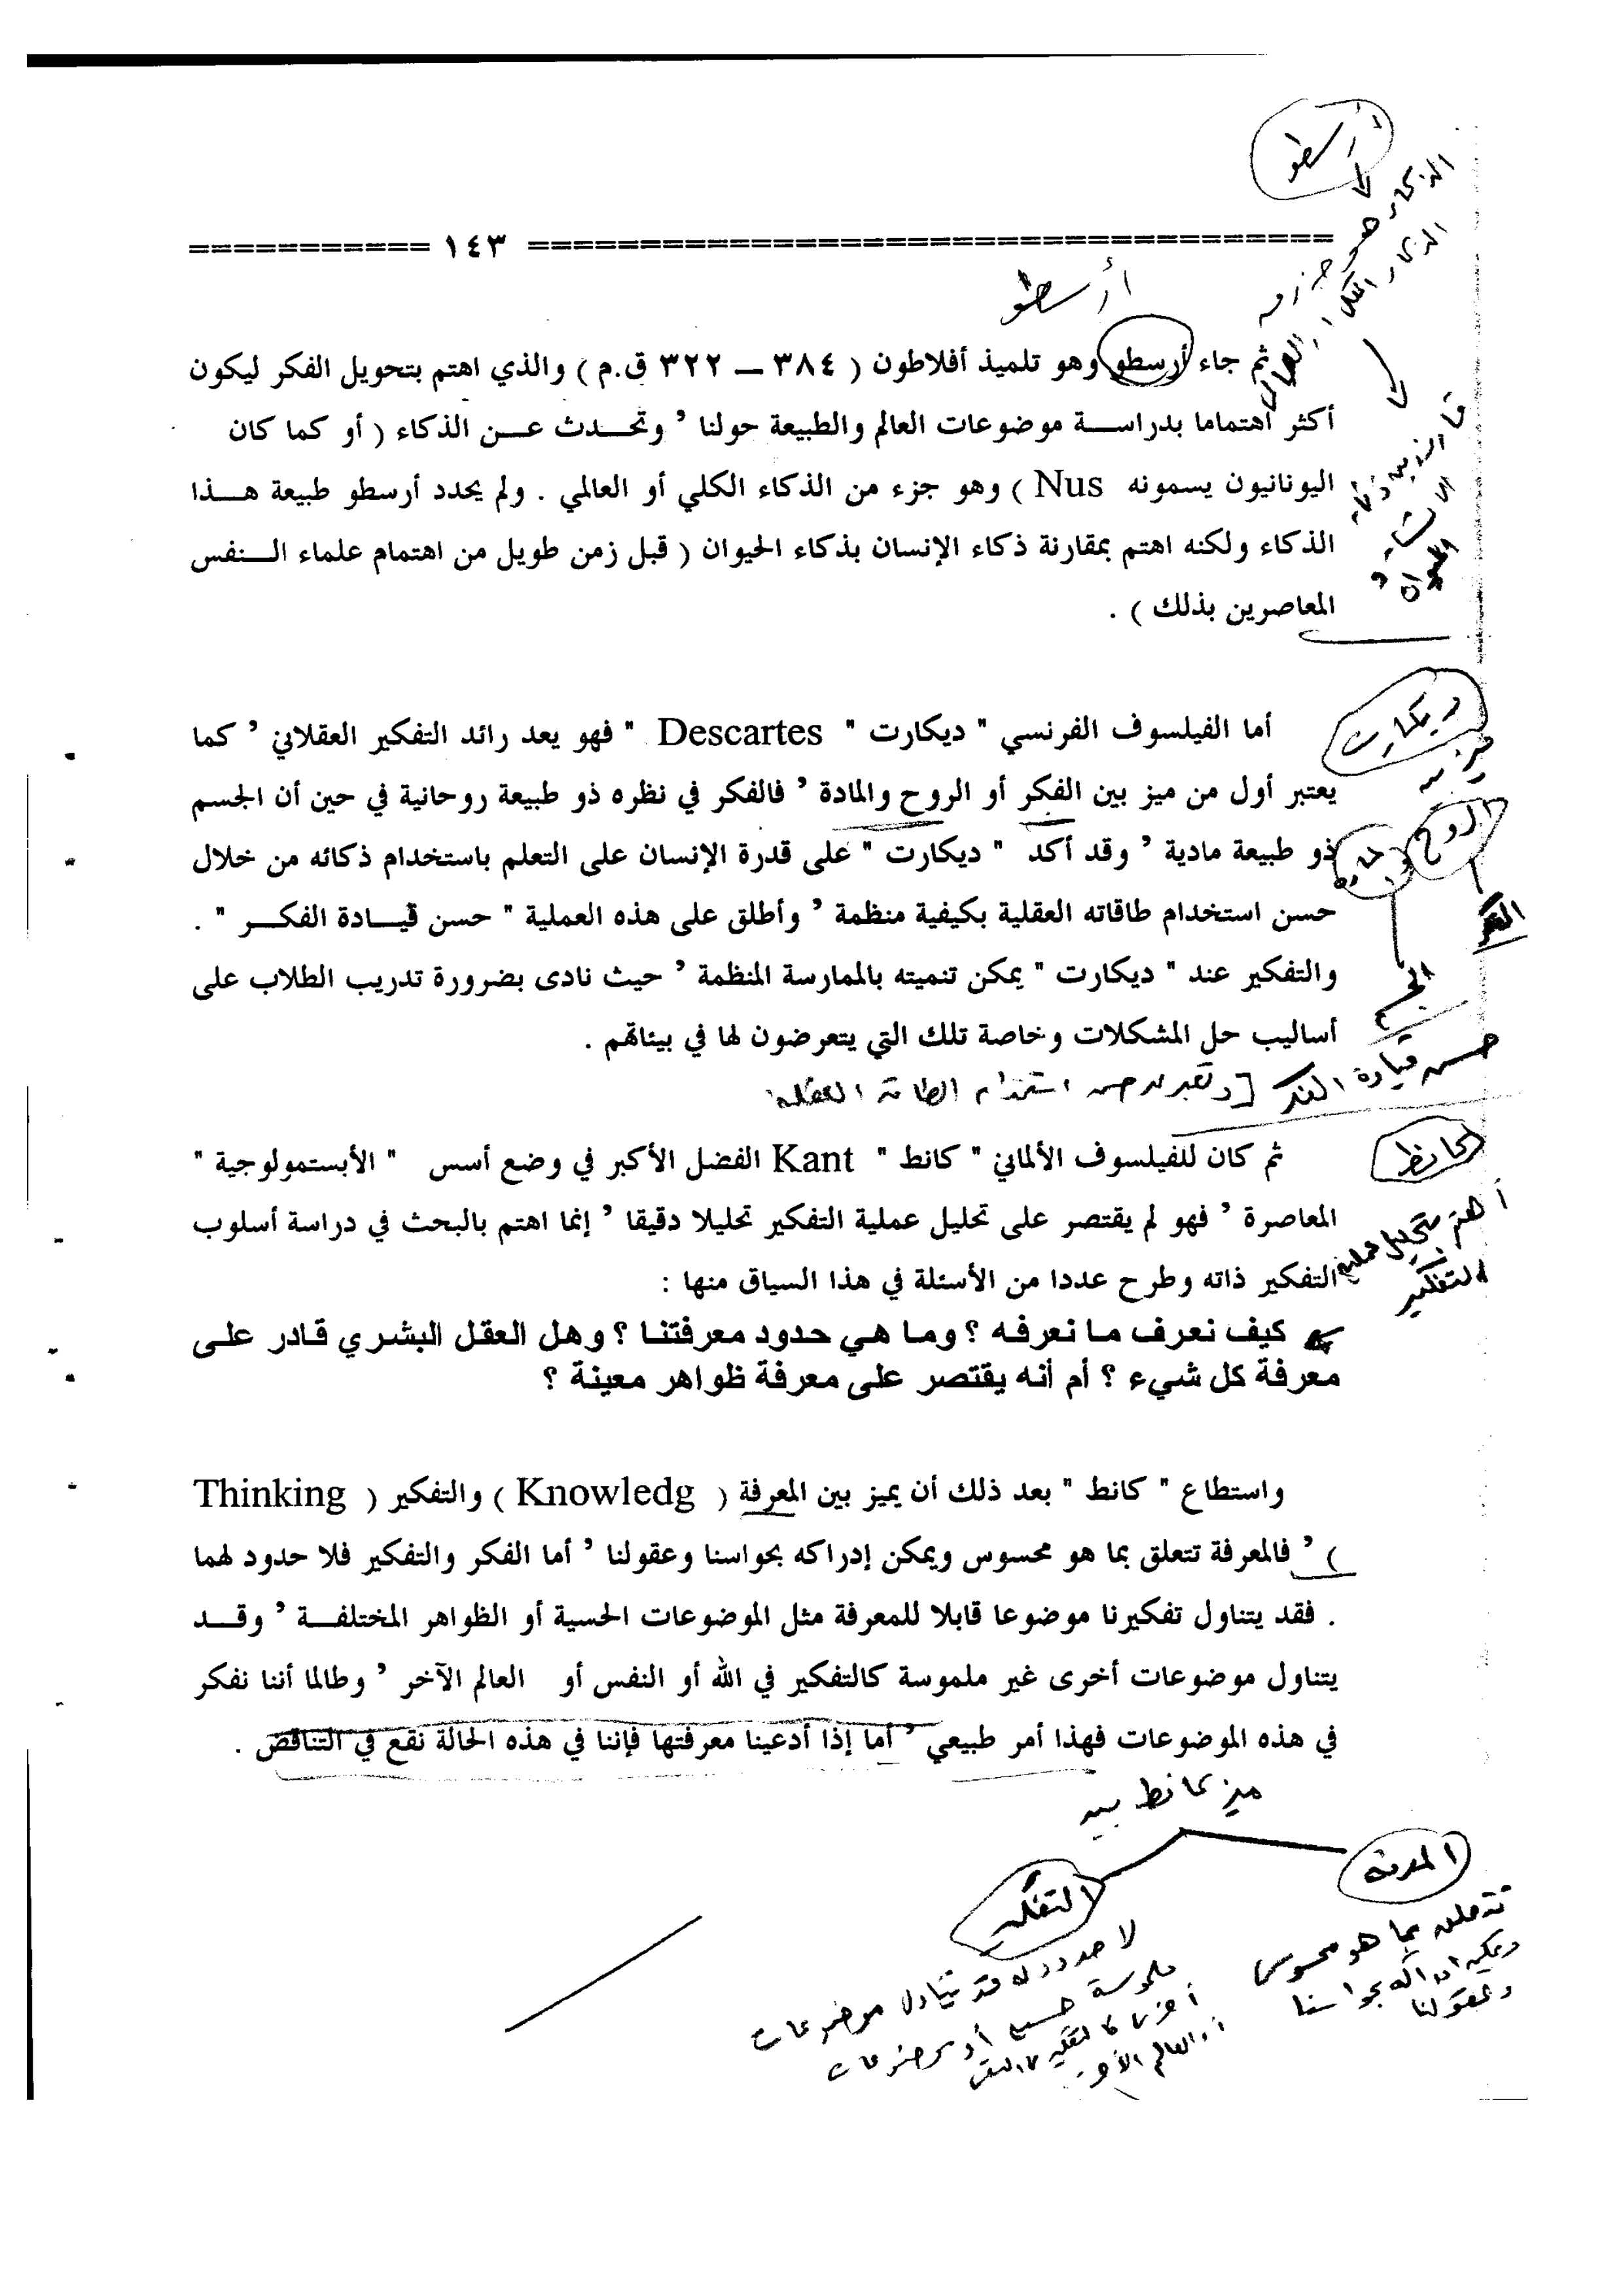 أرسطو
الذكاء هو جزء من
الذكاء الكلي أو العالمي
=========== ١٤٣ ===================================
أرسطو
ثم جاء أرسطو وهو تلميذ أفلاطون ( ٣٨٤ – ٣٢٢ ق.م ) والذي اهتم بتحويل الفكر ليكون
أكثر اهتماما بدراسة موضوعات العالم والطبيعة حولنا ’ وتحدث عن الذكاء ( أو كما كان
اليونانيون يسمونه Nus ) وهو جزء من الذكاء الكلي أو العالمي . ولم يحدد أرسطو طبيعة هذا
الذكاء ولكنه اهتم بمقارنة ذكاء الإنسان بذكاء الحيوان ( قبل زمن طويل من اهتمام علماء النفس
المعاصرين بذلك ) .
قارن بين ذكاء
الإنسان و
الحيوان
ديكارت
ميز بين
الروح
والمادة
الفكر
الجسم
أما الفيلسوف الفرنسي " ديكارت " Descartes " فهو يعد رائد التفكير العقلاني ’ كما
يعتبر أول من ميز بين الفكر أو الروح والمادة ’ فالفكر في نظره ذو طبيعة روحانية في حين أن الجسم
ذو طبيعة مادية ’ وقد أكد " ديكارت " على قدرة الإنسان على التعلم باستخدام ذكائه من خلال
حسن استخدام طاقاته العقلية بكيفية منظمة ’ وأطلق على هذه العملية " حسن قيادة الفكر " .
والتفكير عند " ديكارت " يمكن تنميته بالممارسة المنظمة ’ حيث نادى بضرورة تدريب الطلاب على
أساليب حل المشكلات وخاصة تلك التي يتعرضون لها في بيئاتهم .
حسن قيادة الفكر [ حسن استخدام الطاقة العقلية
كانط
أهتم بتحليل عملية
التفكير
ثم كان للفيلسوف الألماني " كانط " Kant الفضل الأكبر في وضع أسس " الأبستمولوجية "
المعاصرة ’ فهو لم يقتصر على تحليل عملية التفكير تحليلا دقيقا ’ إنما اهتم بالبحث في دراسة أسلوب
التفكير ذاته وطرح عددا من الأسئلة في هذا السياق منها :
كيف نعرف ما نعرفه ؟ وما هي حدود معرفتنا ؟ وهل العقل البشري قادر على
معرفة كل شيء ؟ أم أنه يقتصر على معرفة ظواهر معينة ؟
واستطاع " كانط " بعد ذلك أن يميز بين المعرفة ( Knowledg ) والتفكير ( Thinking
) ’ فالمعرفة تتعلق بما هو محسوس ويمكن إدراكه بحواسنا وعقولنا ’ أما الفكر والتفكير فلا حدود لهما
. فقد يتناول تفكيرنا موضوعا قابلا للمعرفة مثل الموضوعات الحسية أو الظواهر المختلفة ’ وقد
يتناول موضوعات أخرى غير ملموسة كالتفكير في الله أو النفس أو العالم الآخر ’ وطالما أننا نفكر
في هذه الموضوعات فهذا أمر طبيعي ’ أما إذا أدعينا معرفتها فإننا في هذه الحالة نقع في التناقض .
ميز كانط بين
المعرفة
تتعلق بما هو محسوس
ويمكن ادراكه بحواسنا
وعقولنا
التفكير
لا حدود له قد يتناول موضوعات
ملموسة حسية أو موضوعات
أخرى كالتفكير
أو العالم الآخر